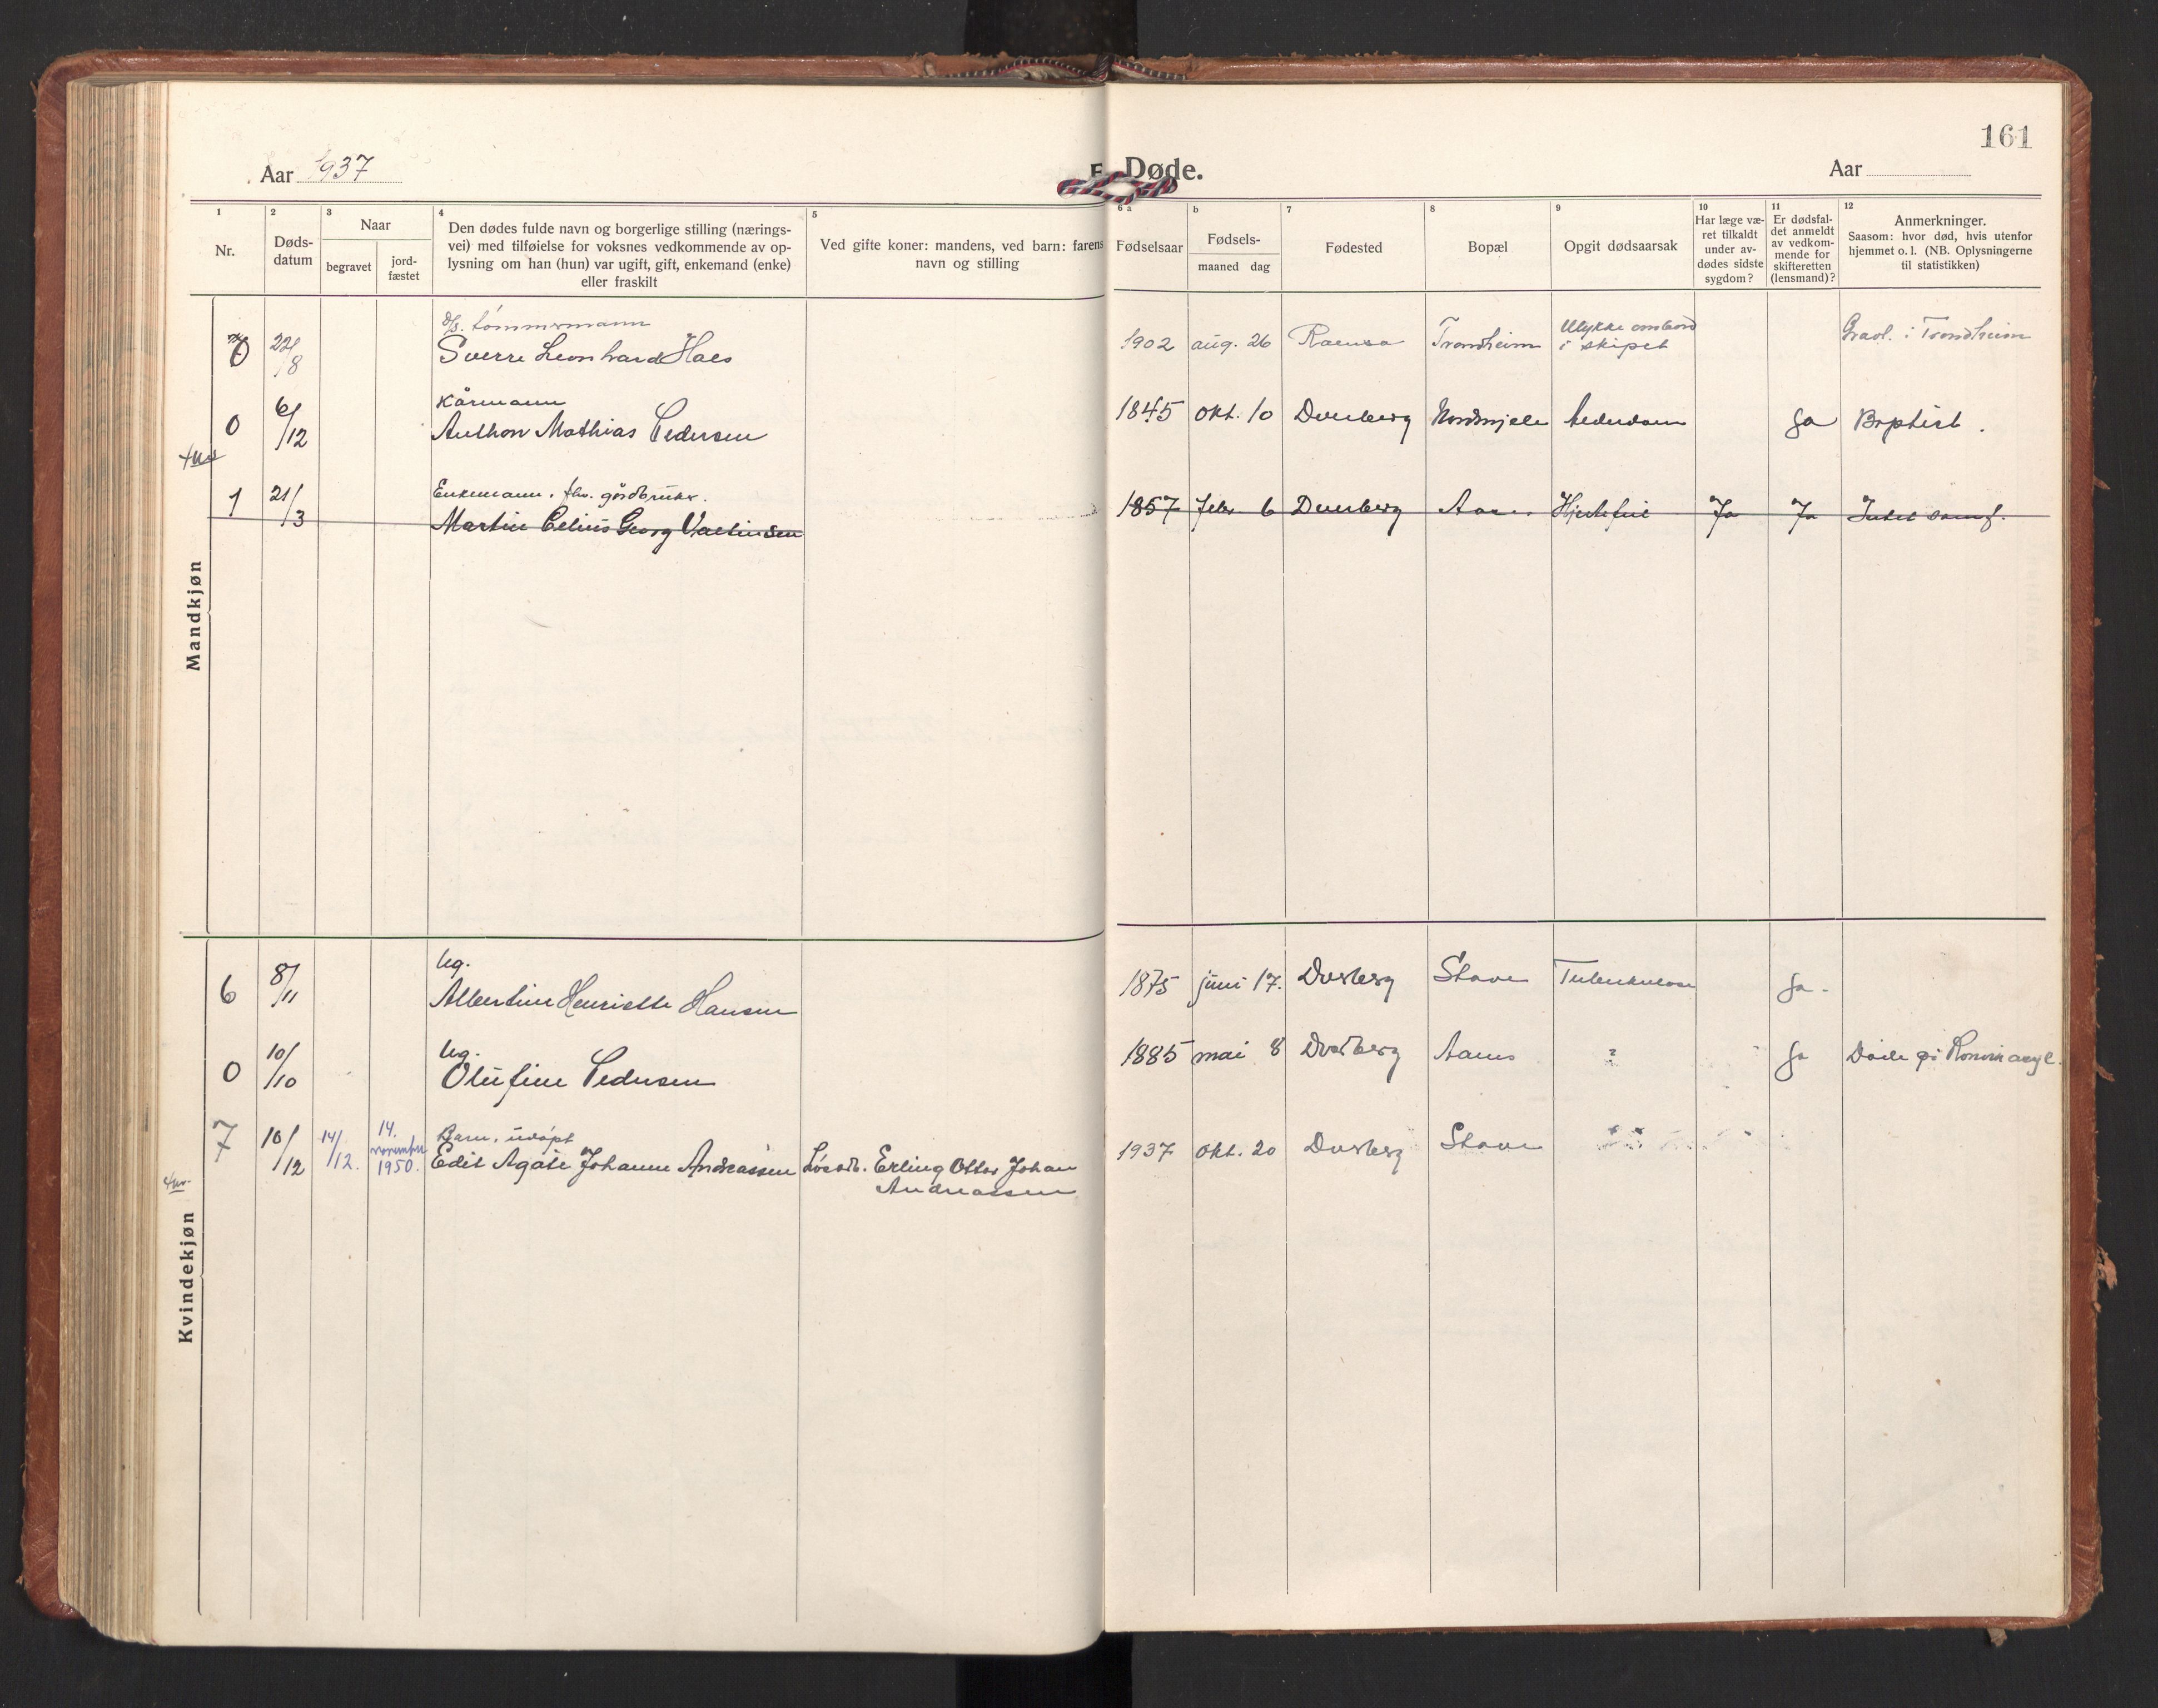 161
Aar 1937
E. Døde.
Aar
1
Nr.
2
Døds-
datum
3
Naar
begravet
jord-
fæstet
4
Den dødes fulde navn og borgerlige stilling (nærings-
vei) med tilføielse for voksnes vedkommende av op-
lysning om han (hun) var ugift, gift, enkemand (enke)
eller fraskilt
5
Ved gifte koner: mandens, ved barn: farens
navn og stilling
6 a
Fødselsaar
b
Fødsels-
maaned dag
7
Fødested
8
Bopæl
9
Opgit dødsaarsak
10
Har læge væ-
ret tilkaldt
under av-
dødes sidste
sygdom?
11
Er dødsfal-
det anmeldt
av vedkom-
mende for
skifteretten
(lensmand)?
12
Anmerkninger.
Saasom: hvor død, hvis utenfor
hjemmet o. l. (NB. Oplysningerne
til statistikken)
Mandkjøn
tømmermann
0 22/8 Sverre Leonhard Haes 1902 aug. 26 Ramsa Trondheim Ulykke ombord
i skipet Gravl. i Trondheim
Kårmann
0 6/12 Anthon Mathias Pedersen 1845 okt. 10 Dverberg Nordmjele Alderdom Ja Baptist.
Enkemann, fhv. gårdbruker.
1 21/3 Martin Celius Georg Martinsen 1857 febr 6 Dverberg Hjertefeil Ja Ja
Kvindekjøn
Ug.
6 8/11 Albertine Henriette Hansen 1875 juni 17. Dverberg Stave Tuberkulose Ja.
Ug.
0 10/10 Olufine Pedersen 1885 mai 8 Dverberg Aanes ? Ja Døde på Rønvik asyl.
Barn, udøpt
7 10/12 14/12. 14. november 1950. Edit Agate Johanne Andreassen Løsarb. Erling Otto Johan
Andreassen 1937 okt. 20 Dverberg Stave